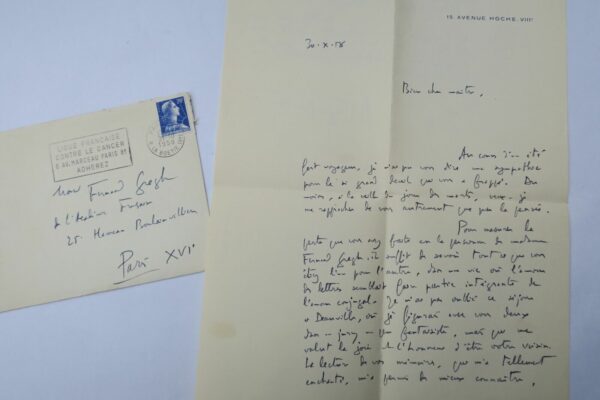 LIGUE FRANÇAISE
CONTRE LE CANCER
6 AV. MARCEAU PARIS 8E
ADHÉREZ
Fernand Gregh
de l'Académie Française
25 Hameau Boulainvilliers
Paris XVIe
15 AVENUE HOCHE VIIIE
30.X.58
Bien cher maître,
Au cours d'un été
fort voyageur, je n'ai pu vous dire ma sympathie
pour le si grand deuil qui vous a frappé. Du
moins, à la veille du jour des morts, veux-je
me rapprocher de vous autrement que par la pensée.
Pour mesurer la
perte que vous avez faite en la personne de madame
Fernand Gregh, il suffit de savoir tout ce que vous
étiez l'un pour l'autre, dans une vie où l'amour
des lettres semblait faire partie intégrante de
l'amour conjugal. Je n'ai pas oublié ce séjour
à Deauville, où je figurais avec vous deux
dans un jury un peu fantaisiste, mais qui me
valut la joie et l'honneur d'être votre voisin.
La lecture de vos mémoires, qui m'a tellement
enchanté, m'a permis de mieux connaître,